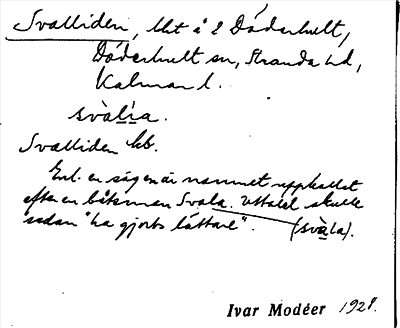 Svalliden, lht å 2 Döderhult,
Döderhult sn, Stranda hd,
Kalmar l.
svàlia.
Svalliden kb.
Enl. en sägen är namnet uppkallat
efter en båtsman Svala. Uttalet skulle
sedan "ha gjorts lättare". (svàla).
Ivar Modéer 1928.